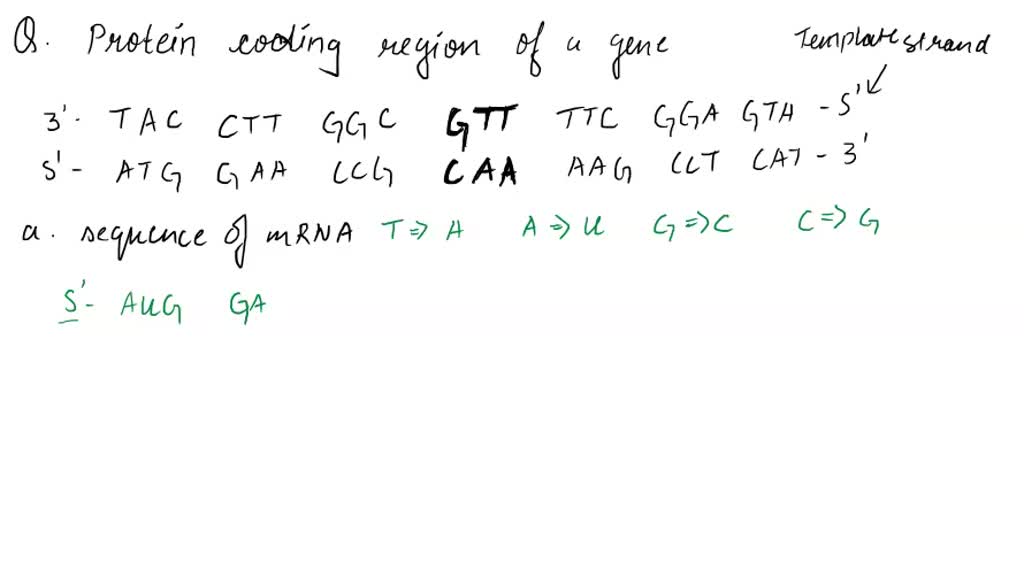 Q. Protein coding region of a gene
Template strand
3'- TAC CTT GGC GTT TTC GGA GTA - 5'
5'- ATG GAA CCG CAA AAG CCT CAT - 3'
a. sequence of mRNA T => A A => U G => C C => G
5'- AUG GA